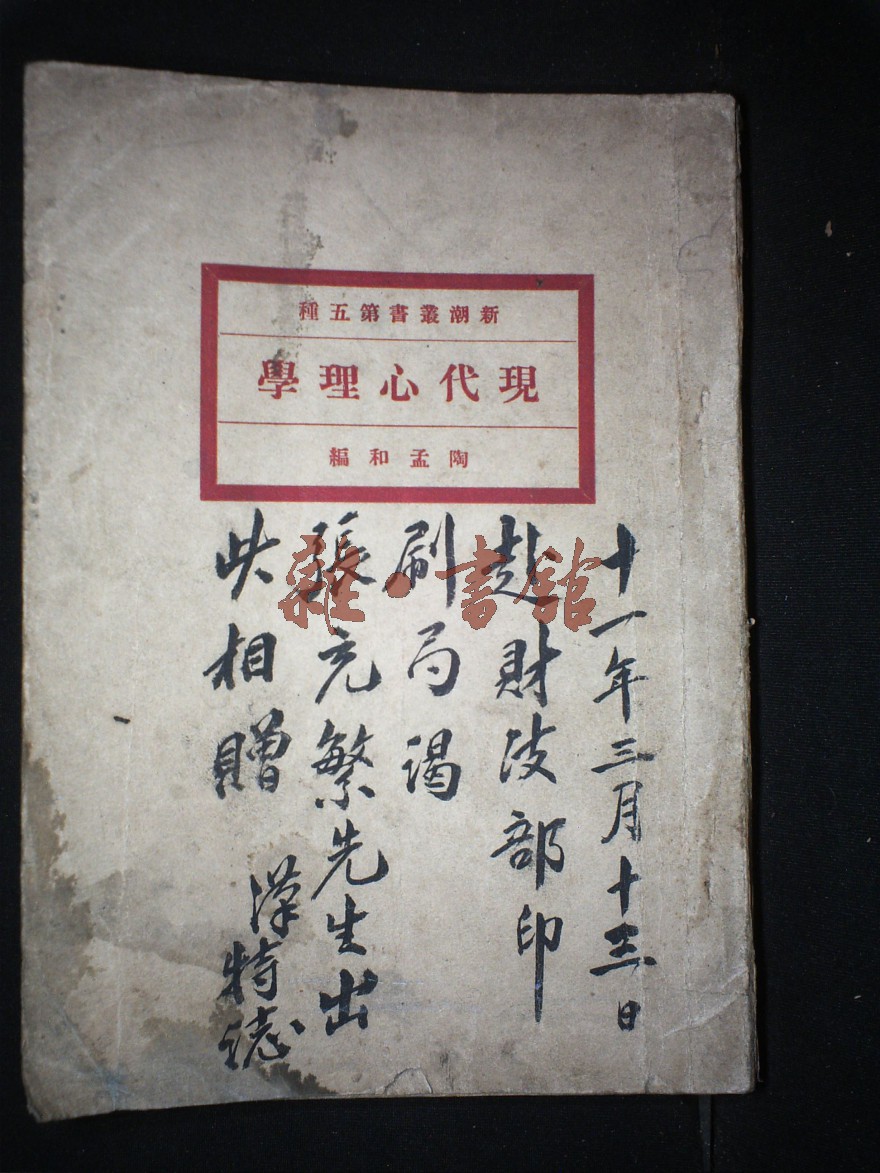 新潮叢書第五種
現代心理學
陶孟和編
十一年三月十三日
赴財政部印
刷局謁
張充繁先生出
此相贈
漢特誌
雜·書館